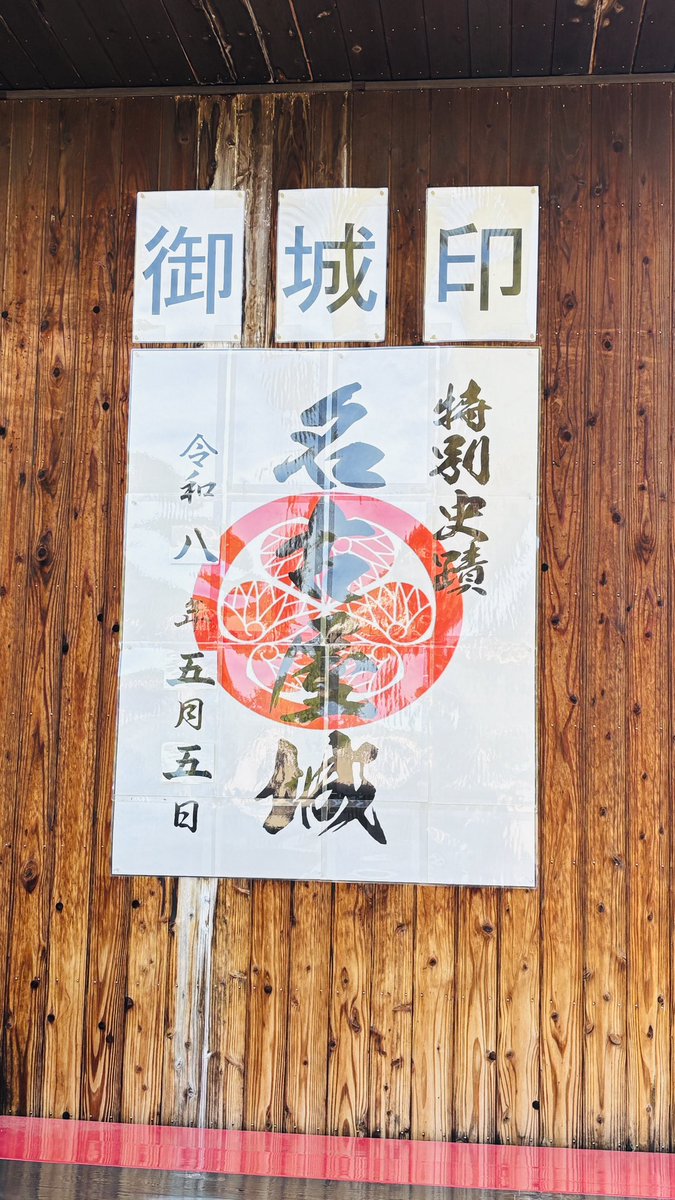 御城印
特別史蹟
名古屋城
令和八年五月五日